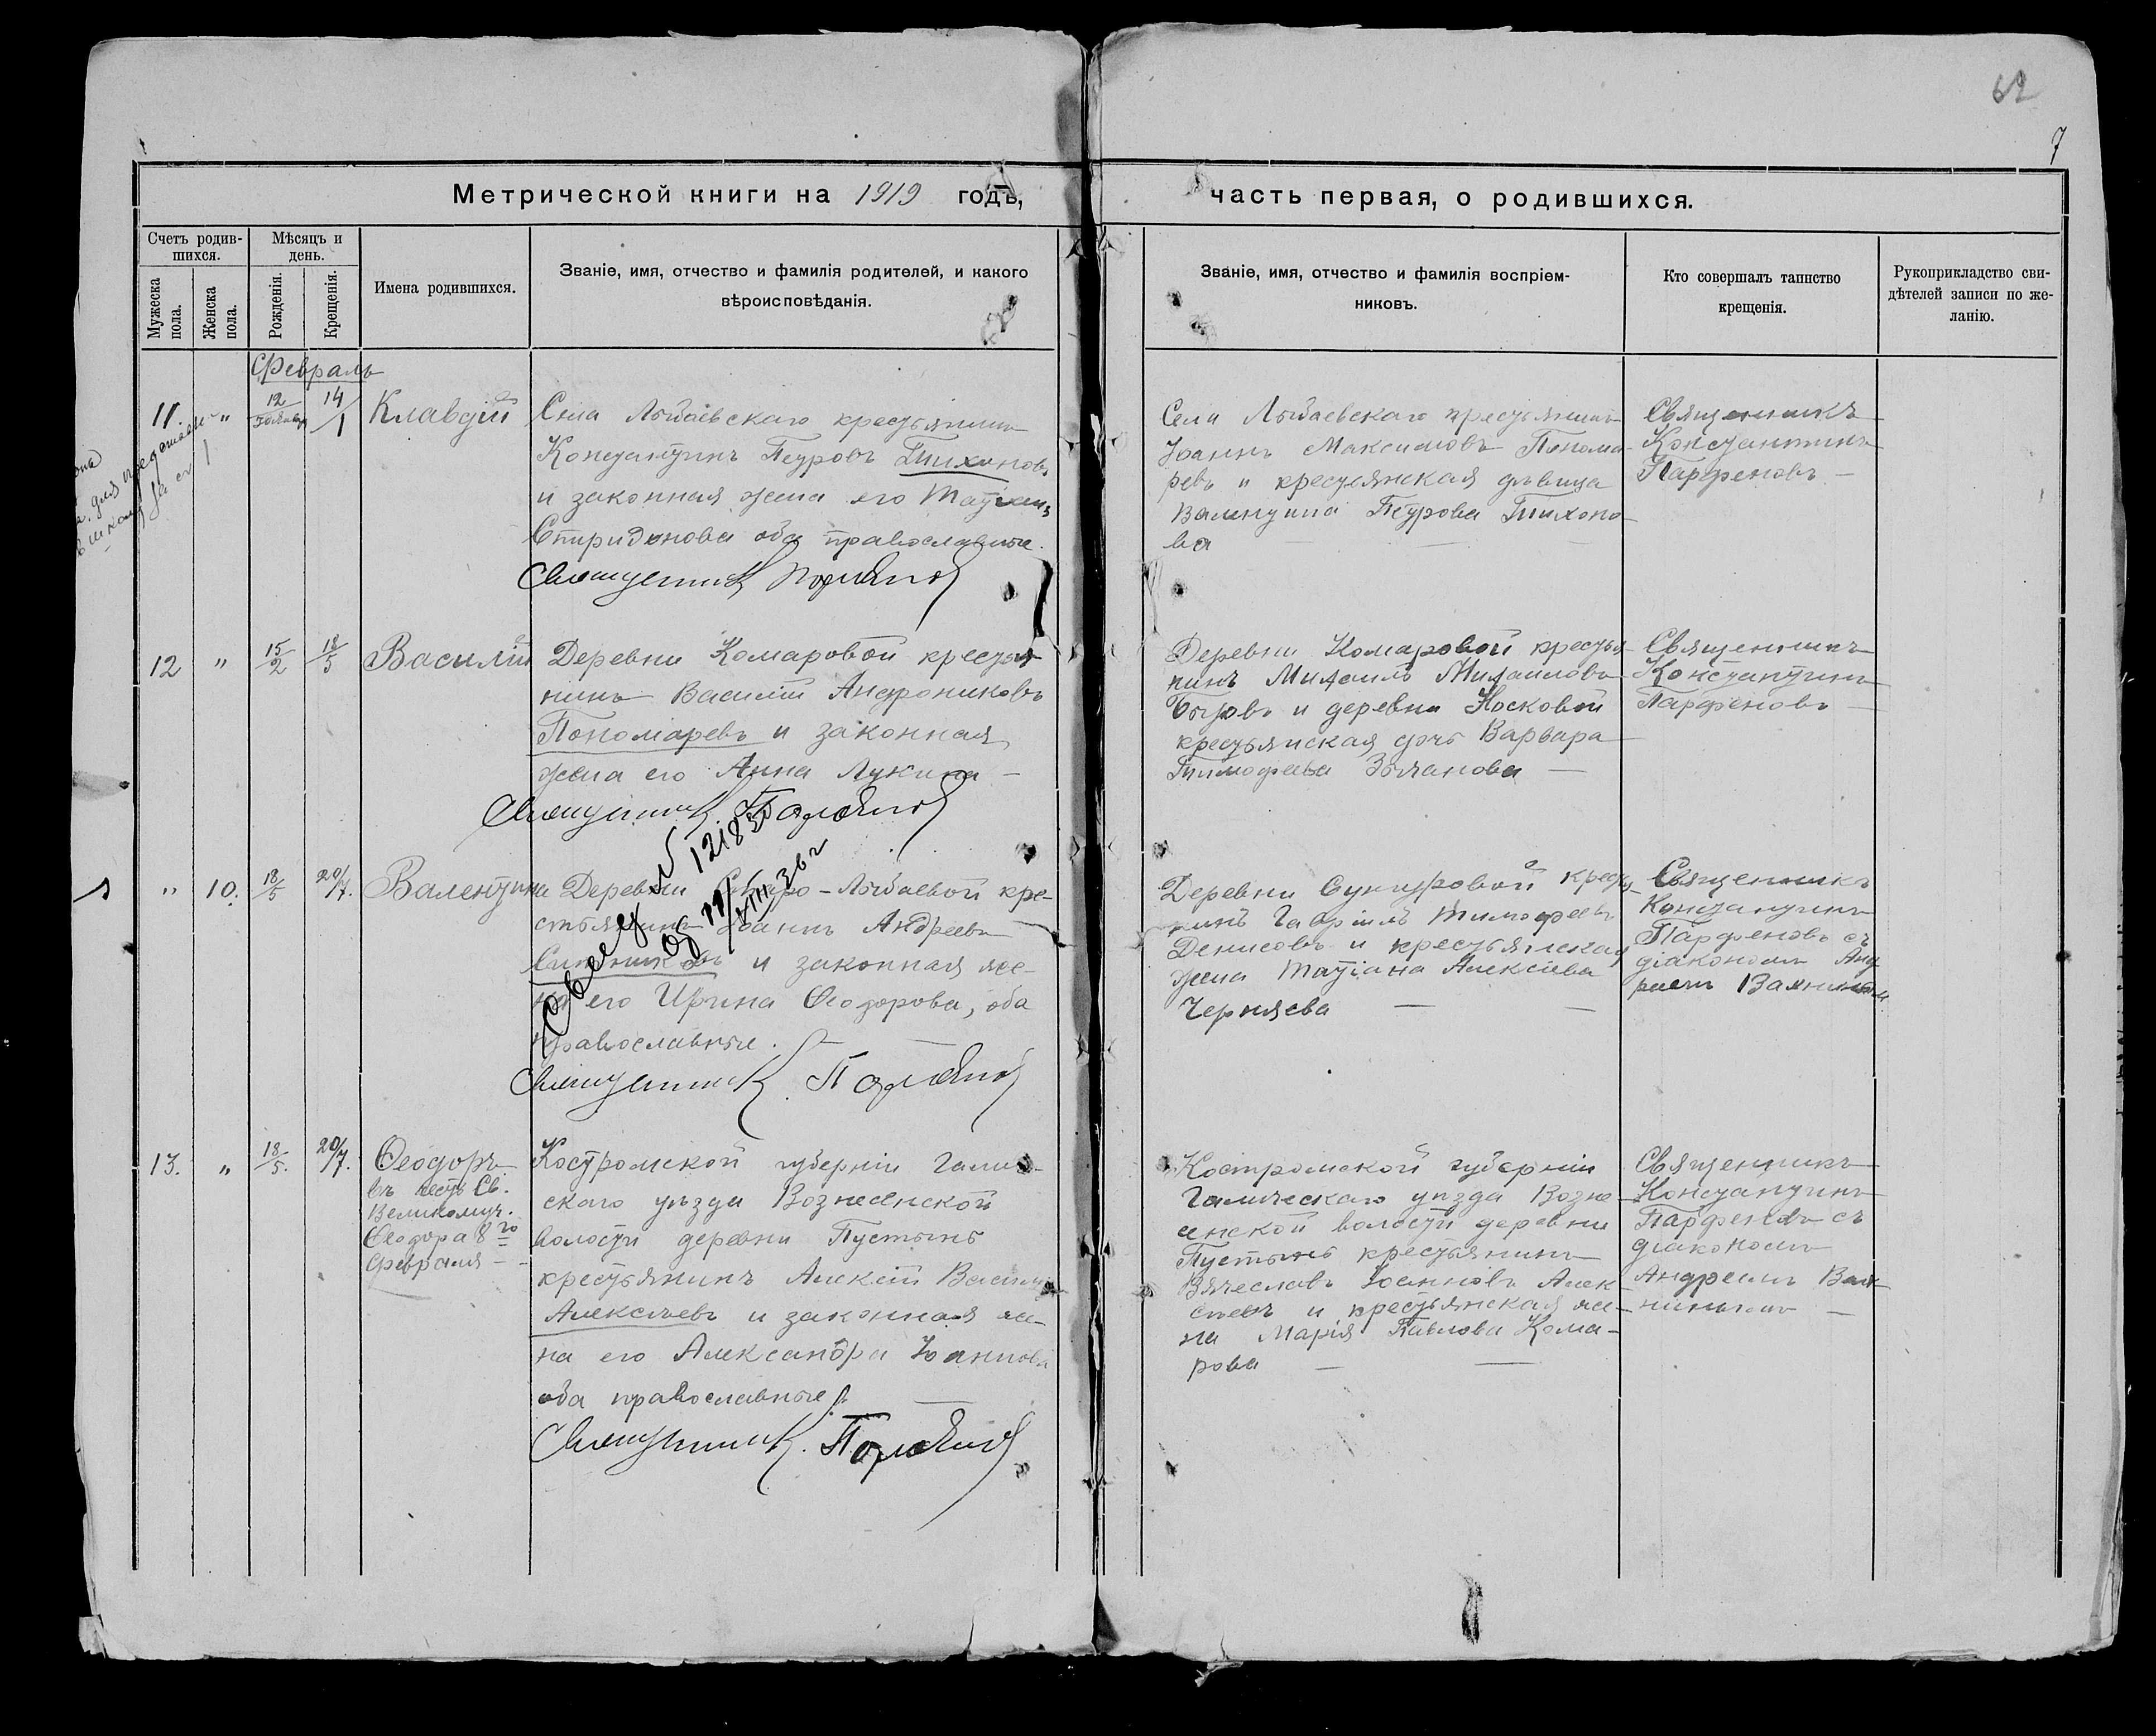 62
7
Метрической книги на 1919 годъ,
часть первая, о родившихся.
Счетъ родив-
шихся.
Мѣсяцъ и
день.
Мужеска
пола.
Женска
пола.
Рожденія.
Крещенія.
Имена родившихся.
Званіе, имя, отчество и фамилія родителей, и какого
вѣроисповѣданія.
Званіе, имя, отчество и фамилія воспріем-
никовъ.
Кто совершалъ таинство
крещенія.
Рукоприкладство сви-
дѣтелей записи по же-
ланію.
Февраль
11.
"
12
14/1
Клавдій
Села Лыбаевскаго крестьянинъ
Константинъ Петровъ Тихоновъ
и законная жена его
Спиридонова оба православные.
Священникъ К. Парѳеновъ
Села Лыбаевскаго крестьянинъ
Іоаннъ Максимовъ Понома-
ревъ и крестьянская дѣвица
Валентина Петрова Тихоно-
ва
Священникъ
Константинъ
Парѳеновъ —
12
"
15/2
18/5
Василій
Деревни Комаровой крестья-
нинъ Василій Андрониковъ
Пономаревъ и законная
жена его Анна Лукина —
Священникъ К. Парѳеновъ
Деревни Комаровой крестья-
нинъ Михаилъ Михаиловъ
и деревни Носковой
крестьянская дочь Варвара
Тимофеева —
Священникъ
Константинъ
Парѳеновъ —
"
10.
18/5
20/7.
Валентина
Деревни Старо-Лыбаевой кре-
стьянинъ Іоаннъ Андреевъ
и законная же-
на его Ирина Ѳеодорова, оба
православные.
Священникъ К. Парѳеновъ
№ 121850
Деревни Сунгуровой крестья-
нинъ Гавріилъ Тимофеевъ
Денисовъ и крестьянская
жена Татіана Алексіева
Черняева — —
Священникъ
Константинъ
Парѳеновъ съ
діакономъ Анд-
реемъ
13.
"
18/5.
20/7.
Ѳеодоръ
въ честь Св.
Великомуч.
Ѳеодора 8го
февраля —
Костромской губерніи Галич-
скаго уѣзда Вознесенской
волости деревни Пустынь
крестьянинъ Алексій
Алексѣевъ и законная же-
на его Александра Іоаннова
оба православные. —
Священникъ К. Парѳеновъ
Костромской губерніи
Галичскаго уѣзда Возне-
сенской волости деревни
Пустынь крестьянинъ
Вячеславъ Іоанновъ Алек-
сѣевъ и крестьянская же-
на Марія Павлова Кома-
рова — —
Священникъ
Константинъ
Парѳеновъ съ
діакономъ
Андреемъ